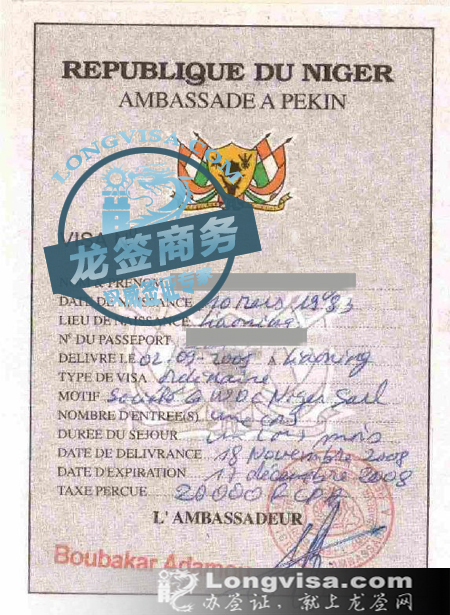 REPUBLIQUE DU NIGER
AMBASSADE A PEKIN
LONGVISA.COM
龙签商务
DATE DE NAISSANCE 10 Mars 1983
LIEU DE NAISSANCE Liaoning
N° DU PASSEPORT
DELIVRE LE 02-09-2008 à Liaoning
TYPE DE VISA Ordinaire
MOTIF Niger Sarl
NOMBRE D'ENTREE(S) une
DUREE DU SEJOUR mois
DATE DE DELIVRANCE 18 Novembre 2008
DATE D'EXPIRATION 17 décembre 2008
TAXE PERCUE 20000 F CFA
L'AMBASSADEUR
Boubakar
Longvisa.com
办签证，就上龙签网